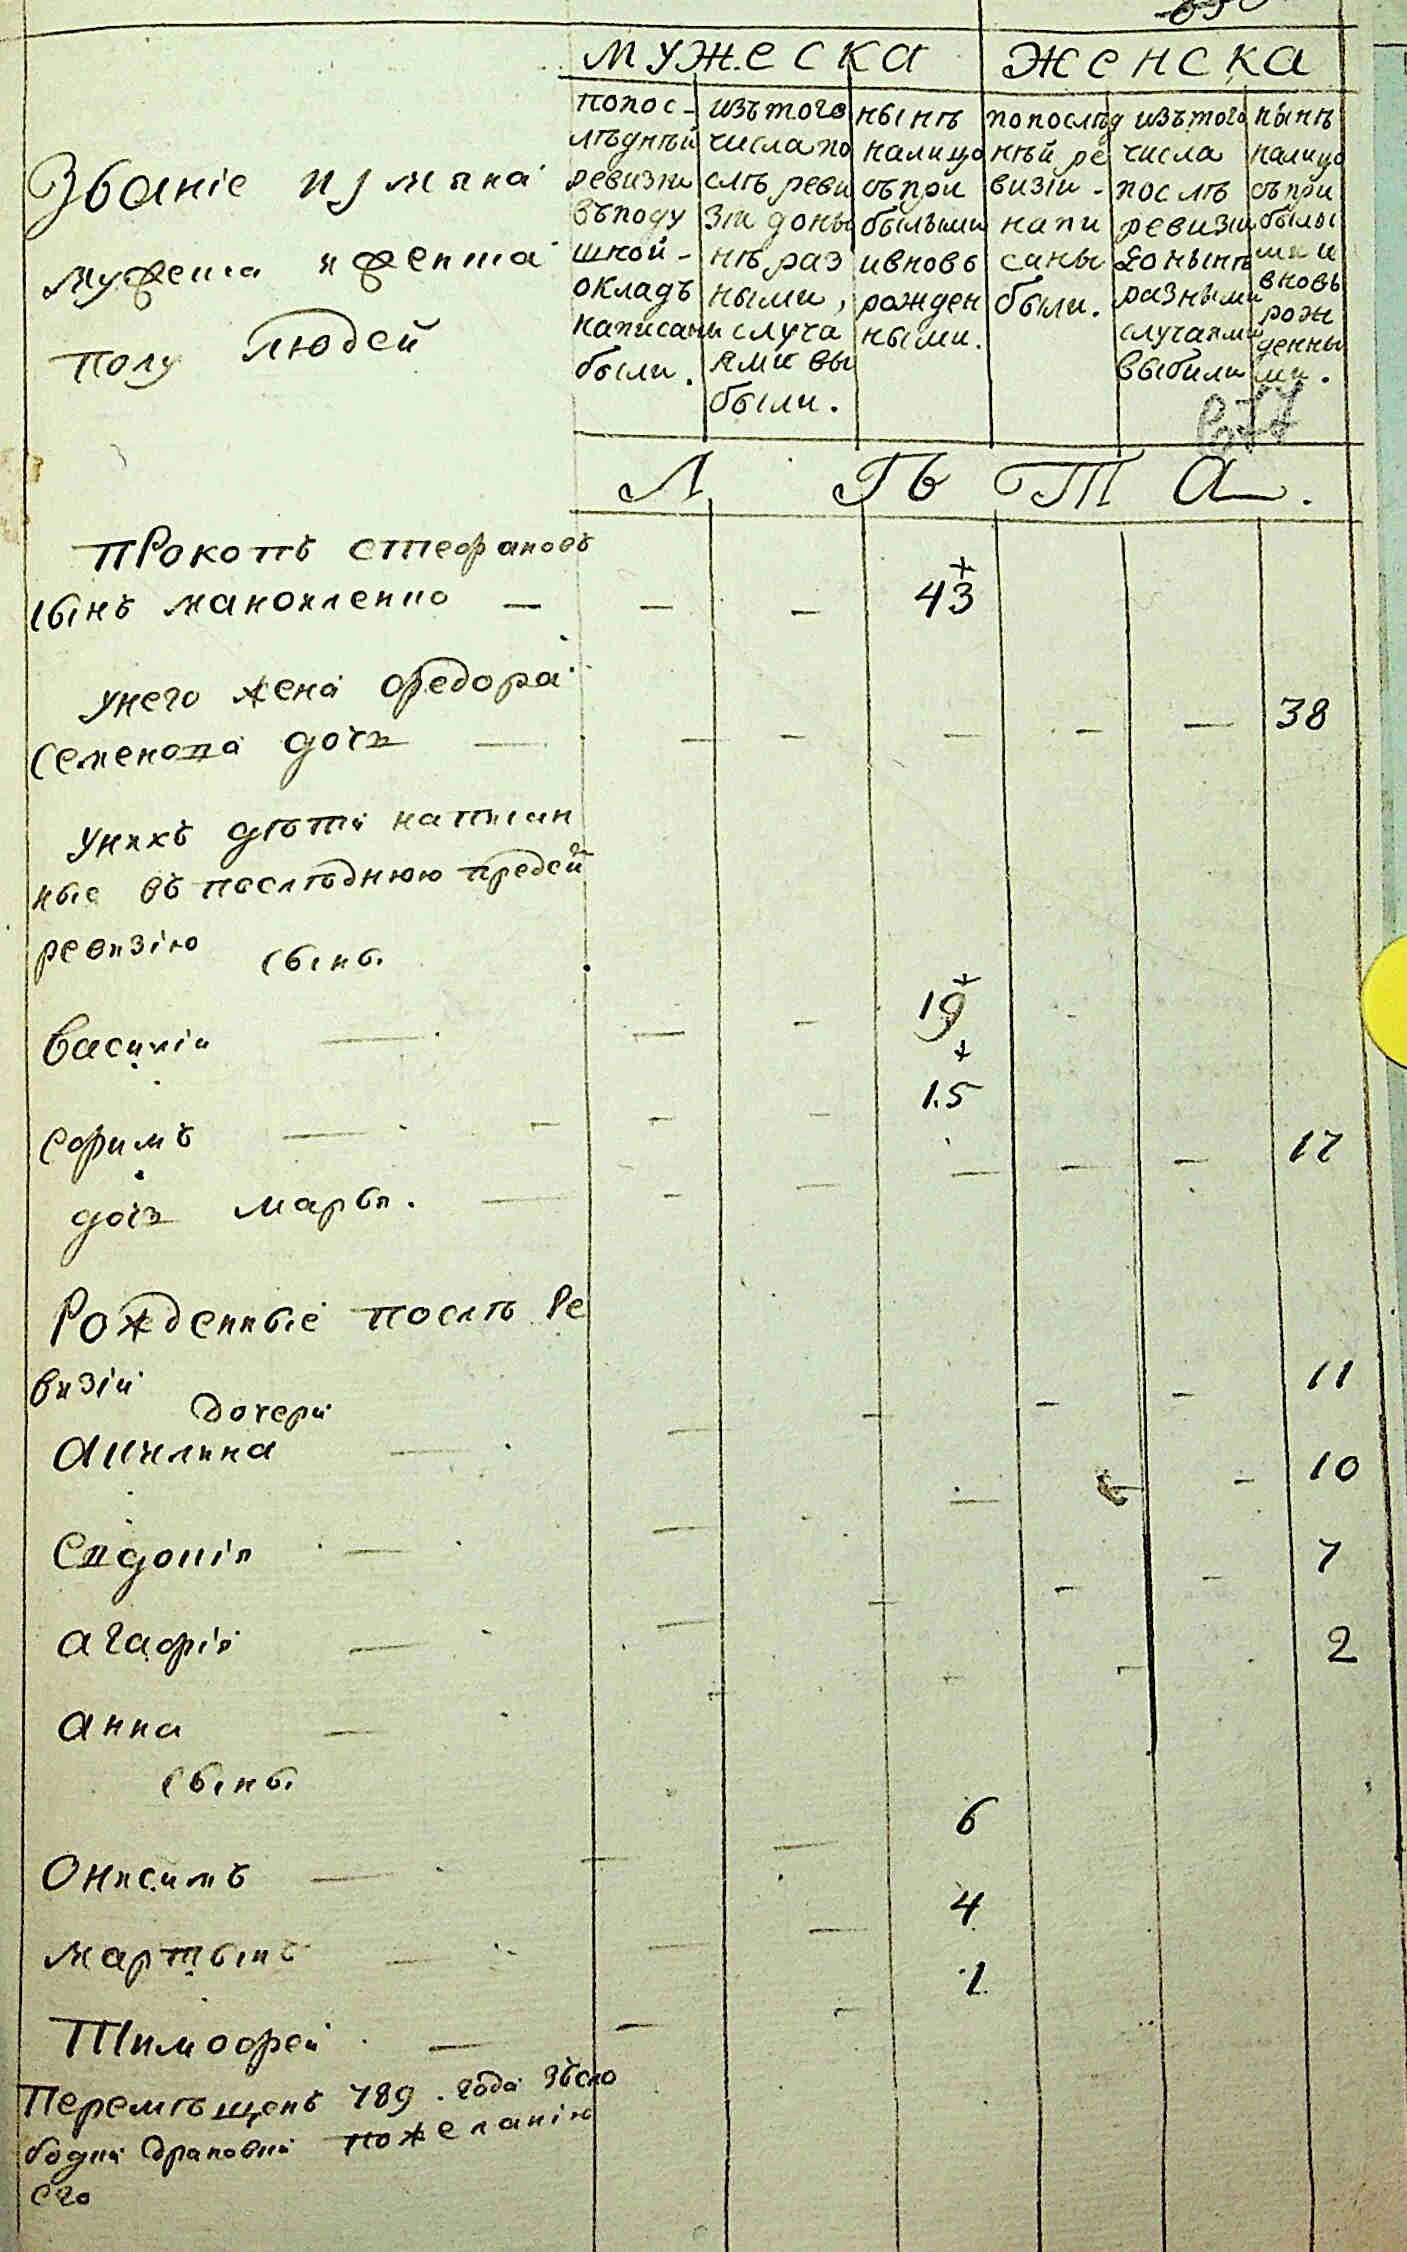 мужеска
женска
Званіе и имяна
мужеска и женска
полу людей
попос-
лѣднѣй
ревизіи
въподу
шной-
окладъ
написаны
были.
изътого
числа по
слѣ реви
зіи доны
нѣ раз
ными,
случа
ями вы
были.
нынѣ
налицо
съпри
былыми
ивновь
рожден
ными.
попослѣд
нѣй ре
визіи-
напи
саны
были.
изътого
числа
послѣ
ревизіи
донынѣ
разными
случаями
выбыли
нынѣ
налицо
съпри
былы
ми и
вновь
рож
денны
ми.
677
Л Ѣ Т А.
Прокопъ Стефановъ
сынъ Манойленко — — — 43
унего жена Федора
Семенова дочь — — — — — — 38
унихъ дѣти написан
ные въ послѣднюю предсей
ревизію сынь.
Василіи — — — 19
Ефимъ — — — — 15
дочь Марья. — — — — — — 17
Рожденные послѣ ре
визіи
дочери
Акилина — — — — — 11
Евдокія — — — — — 10
Агафія — — — — — 7
Анна — — — — 2
сынь.
Онисимъ — — — 6
Мартынъ — — — 4
Тимофей — — — 1
Перемѣщенъ 789. года зъсло
боды пожеланію
его